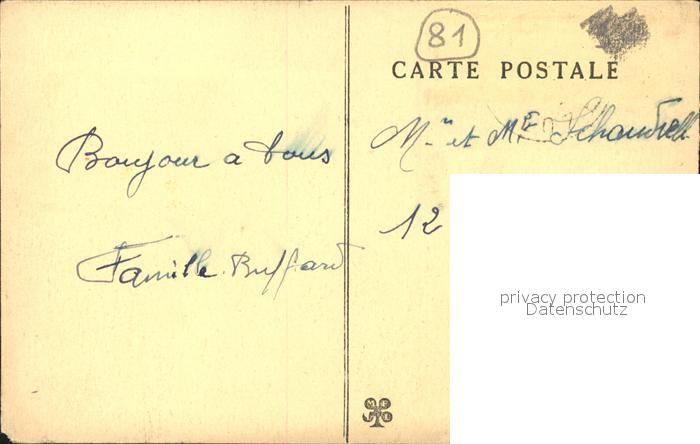 81
CARTE POSTALE
Bonjour a tous
Famille Buffard
Mr et Me
12
privacy protection
Datenschutz